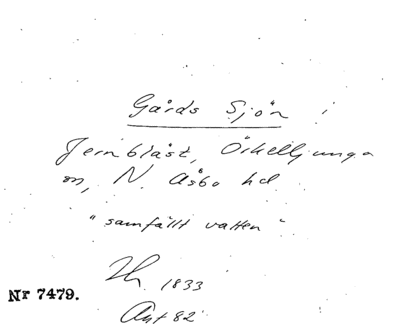 Gårds Sjön i
Jernbläst, Örkelljunga
sn, N. Åsbo hd
"samfällt vatten"
1833
Nr 7479.
Akt 82